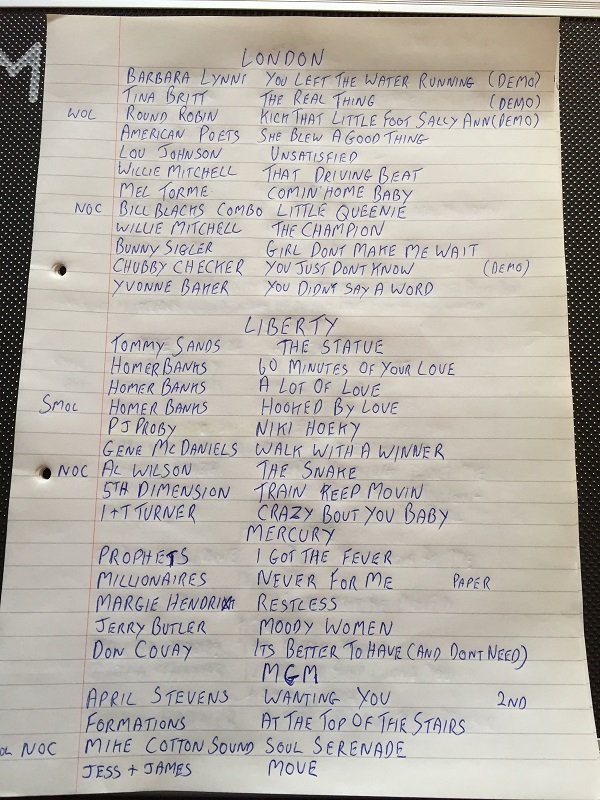 M
LONDON
BARBARA LYNN YOU LEFT THE WATER RUNNING (DEMO)
TINA BRITT THE REAL THING (DEMO)
WOL ROUND ROBIN KICK THAT LITTLE FOOT SALLY ANN (DEMO)
AMERICAN POETS SHE BLEW A GOOD THING
LOU JOHNSON UNSATISFIED
WILLIE MITCHELL THAT DRIVING BEAT
MEL TORME COMIN' HOME BABY
NOC BILL BLACKS COMBO LITTLE QUEENIE
WILLIE MITCHELL THE CHAMPION
BUNNY SIGLER GIRL DONT MAKE ME WAIT
CHUBBY CHECKER YOU JUST DONT KNOW (DEMO)
YVONNE BAKER YOU DIDNT SAY A WORD
LIBERTY
TOMMY SANDS THE STATUE
HOMER BANKS 60 MINUTES OF YOUR LOVE
HOMER BANKS A LOT OF LOVE
SMOL HOMER BANKS HOOKED BY LOVE
PJ PROBY NIKI HOEKY
GENE MCDANIELS WALK WITH A WINNER
NOC AL WILSON THE SNAKE
5TH DIMENSION TRAIN KEEP MOVIN
I+T TURNER CRAZY BOUT YOU BABY
MERCURY
PROPHETS I GOT THE FEVER
MILLIONAIRES NEVER FOR ME PAPER
MARGIE HENDRIX RESTLESS
JERRY BUTLER MOODY WOMEN
DON COVAY ITS BETTER TO HAVE (AND DONT NEED)
MGM
APRIL STEVENS WANTING YOU 2ND
FORMATIONS AT THE TOP OF THE STAIRS
OL NOC MIKE COTTON SOUND SOUL SERENADE
JESS + JAMES MOVE